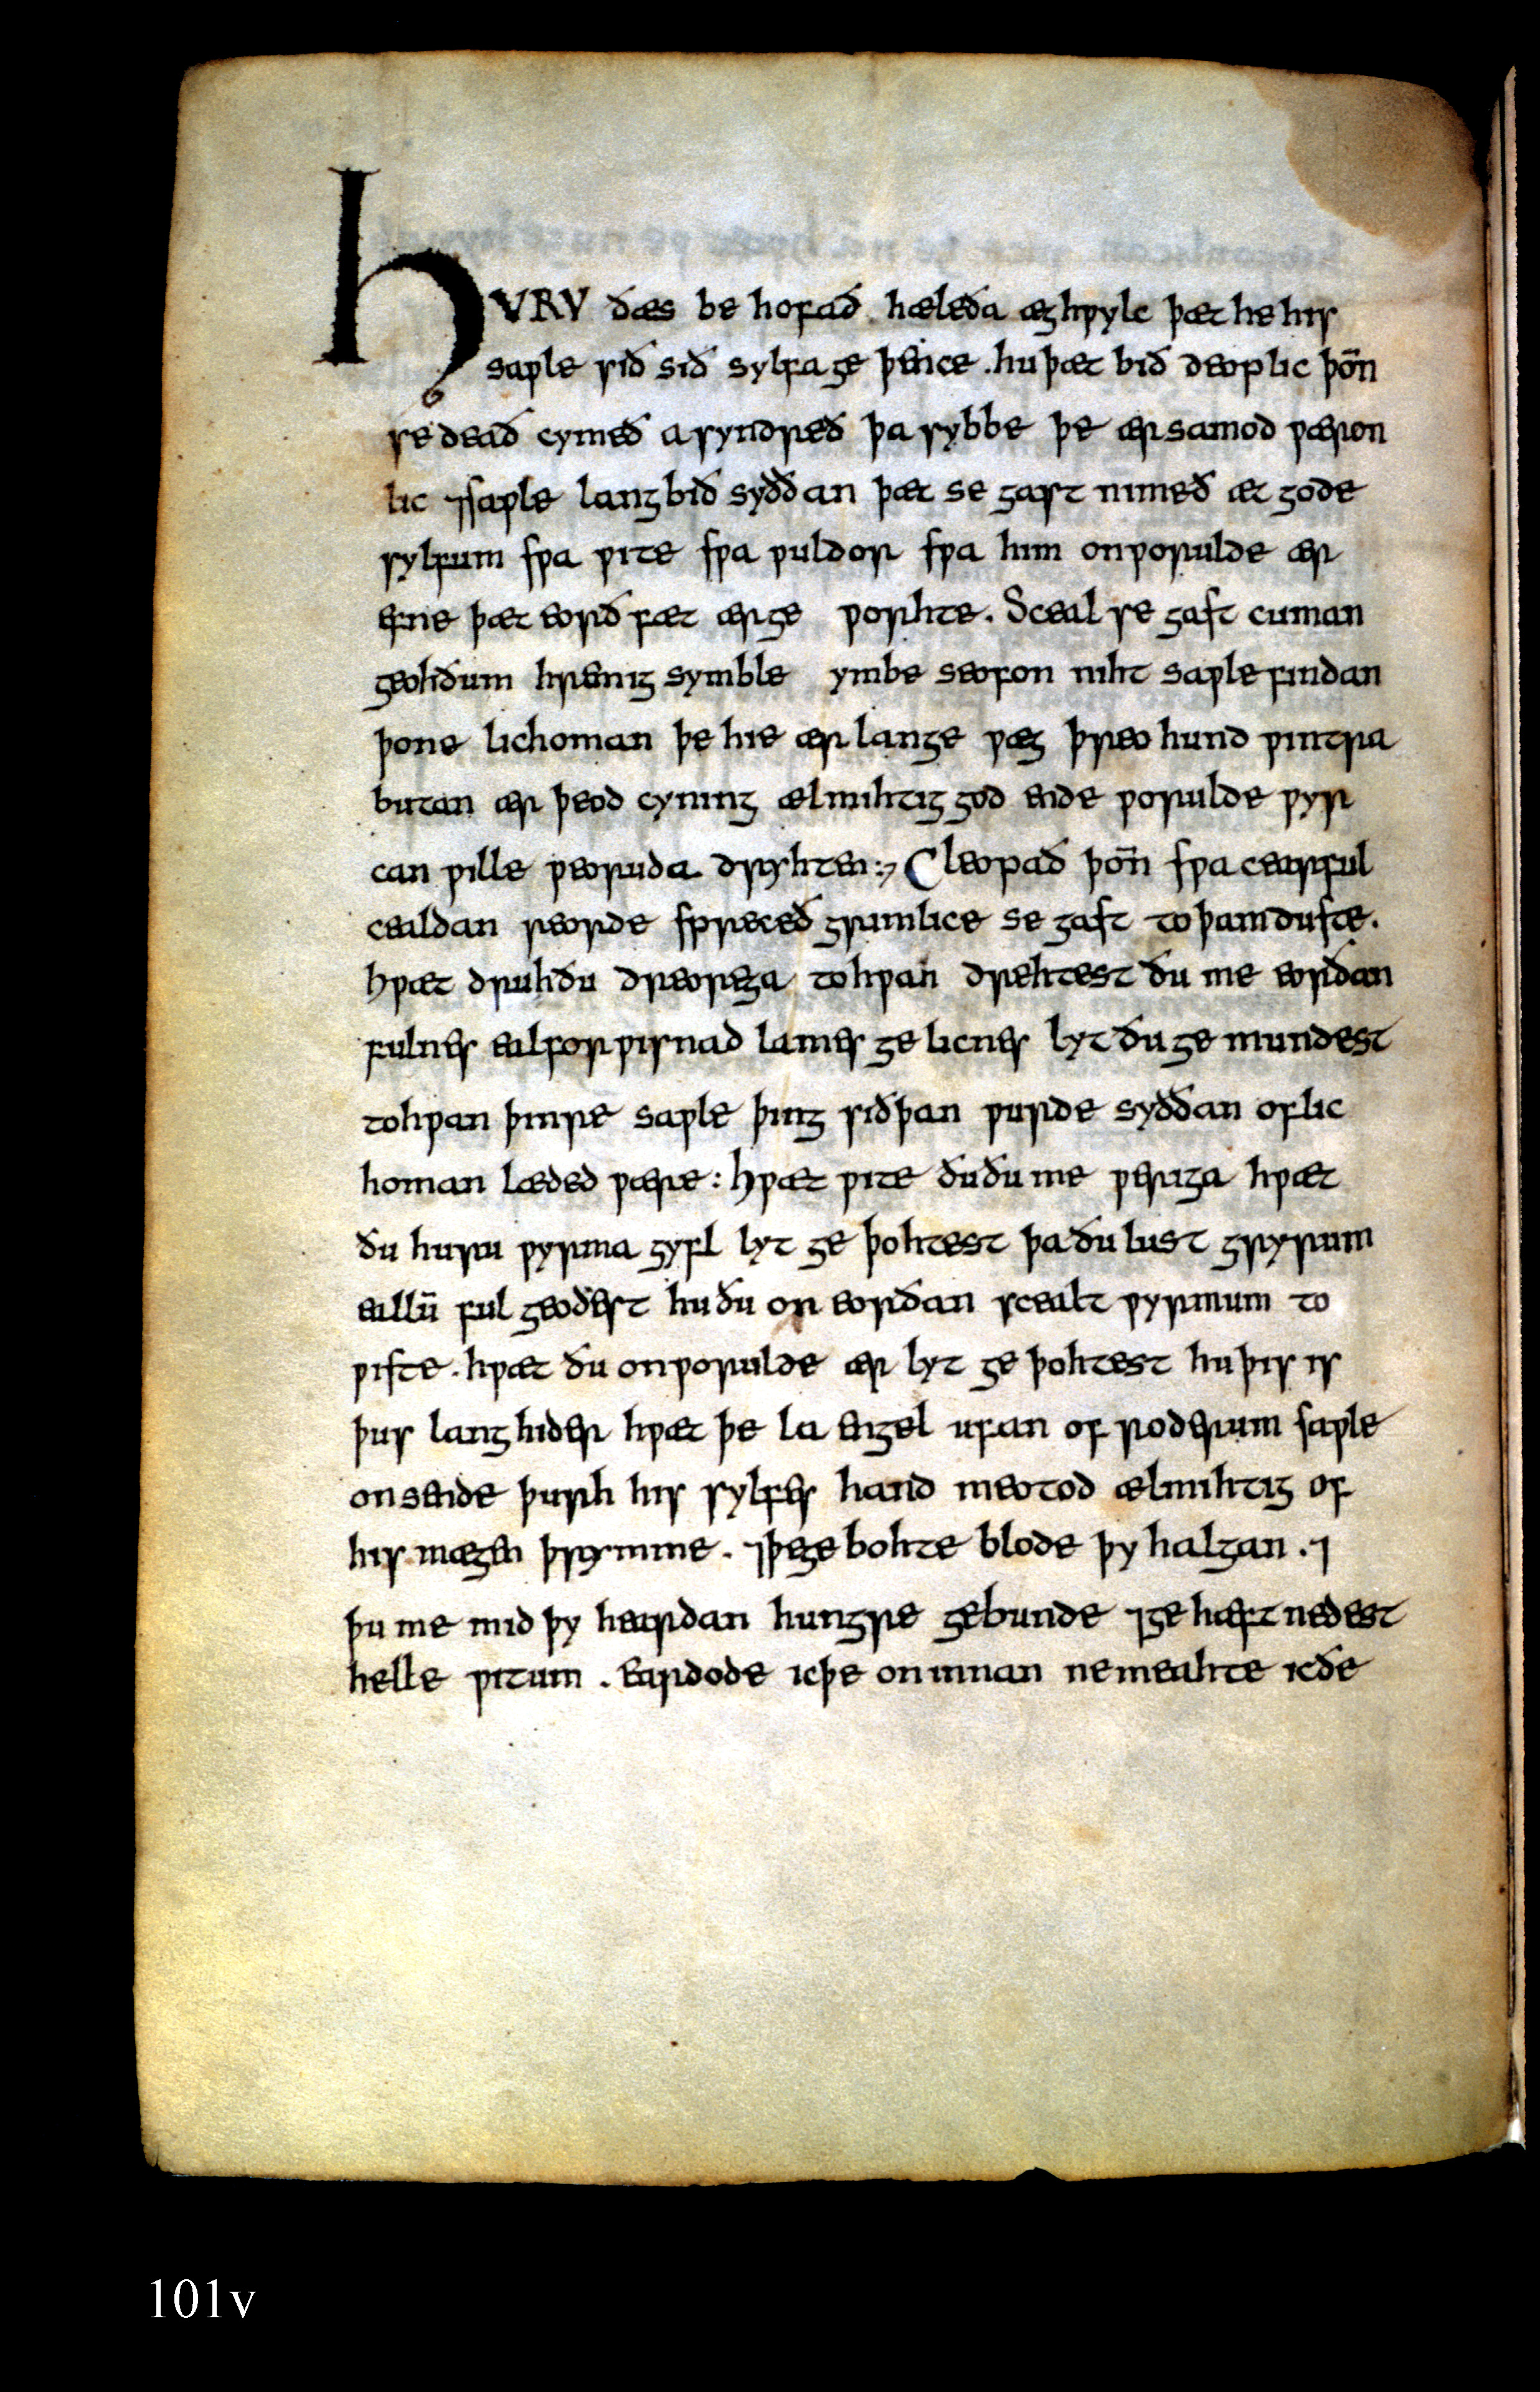 HURU ðæs be hofað hæleða æghƿylc þæt he his
saƿle sið sið sylfa ge þence . hu þæt bið deoplic þoñ
se deað cymeð asyndreð þa sybbe þe ær samod ƿæron
lic ⁊ saƿle lang bið syððan þæt se gast nimeð æt gode
sylfum sƿa ƿite sƿa ƿuldor sƿa him on ƿorulde ær
efne þæt eorð fæt ær ge ƿorhte . Sceal se gast cuman
geohðum hremig symble ymbe seofon niht saƿle findan
þone lichoman þe hie ær lange ƿæg þreo hund ƿintra
butan ær þeod cyning ælmihtig god ende ƿorulde ƿyr
can ƿille ƿeoruda dryhten :⁊ Cleopað þoñ sƿa cearful
cealdan reorde spreceð grimlice se gast to þam duste .
hƿæt druhðu dreorega to hƿan drehtest ðu me eorðan
fulnes eal forƿisnad lames ge licnes lyt ðu ge mundest
to hƿan þinre saƿle þing sið þan ƿurde syððan of lic
homan læded ƿære : hƿæt ƿite ðu ðu me ƿeriga hƿæt
ðu huru ƿyrma gyfl lyt ge þohtest þa ðu lust gryrum
eallū ful geodest hu ðu on eorðan scealt ƿyrmum to
ƿiste . hƿæt ðu on ƿorulde ær lyt ge þohtest hu þis is
þus lang hider hƿæt þe la engel ufan of roderum saƿle
onsende þurh his sylfes hand meotod ælmihtig of
his mægen þrymme . ⁊ þe ge bohte blode þy halgan . ⁊
þu me mid þy heardan hungre gebunde ⁊ ge hæft nedest
helle ƿitum . eardode ic þe on innan ne meahte ic ðe
101v